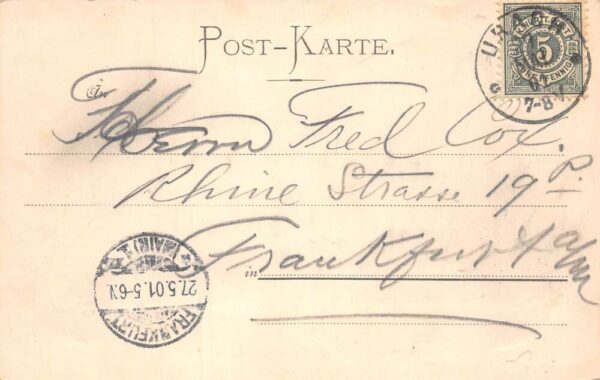 POST-KARTE.
URACH
5
7-8 V
An
Herrn Fred Cox.
Rhine Strasse 19 P.
in Frankfurt a/M
FRANKFURT (MAIN) 1
27.5.01.5-6N.